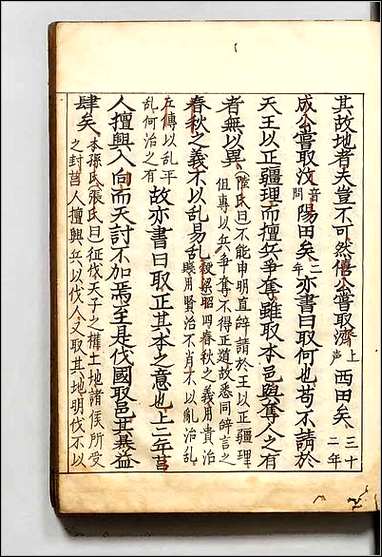 其故地者天豈不可然僖公嘗取濟上声西田矣三十二年
成公嘗取汶音問陽田矣二年亦書曰取何也苟不請於
天王以正疆理而擅兵爭奪雖取本邑與奪人之有
者無以異陸氏曰不能申明直辞請於王以正疆理
但專以兵爭奪不得正道故悉同辞言之
春秋之義不以乱易乱穀梁昭四春秋之義用貴治
賤用賢治不肖不以乱治乱
左傳以乱平
乱何治之有故亦書曰取正其本之意也上二年莒
人擅興入向而天討不加焉至是伐國取邑其暴益
肆矣本孫氏張氏曰征伐天子之權土地諸侯所受
之封莒人擅興兵以伐人又取其地明伐不以